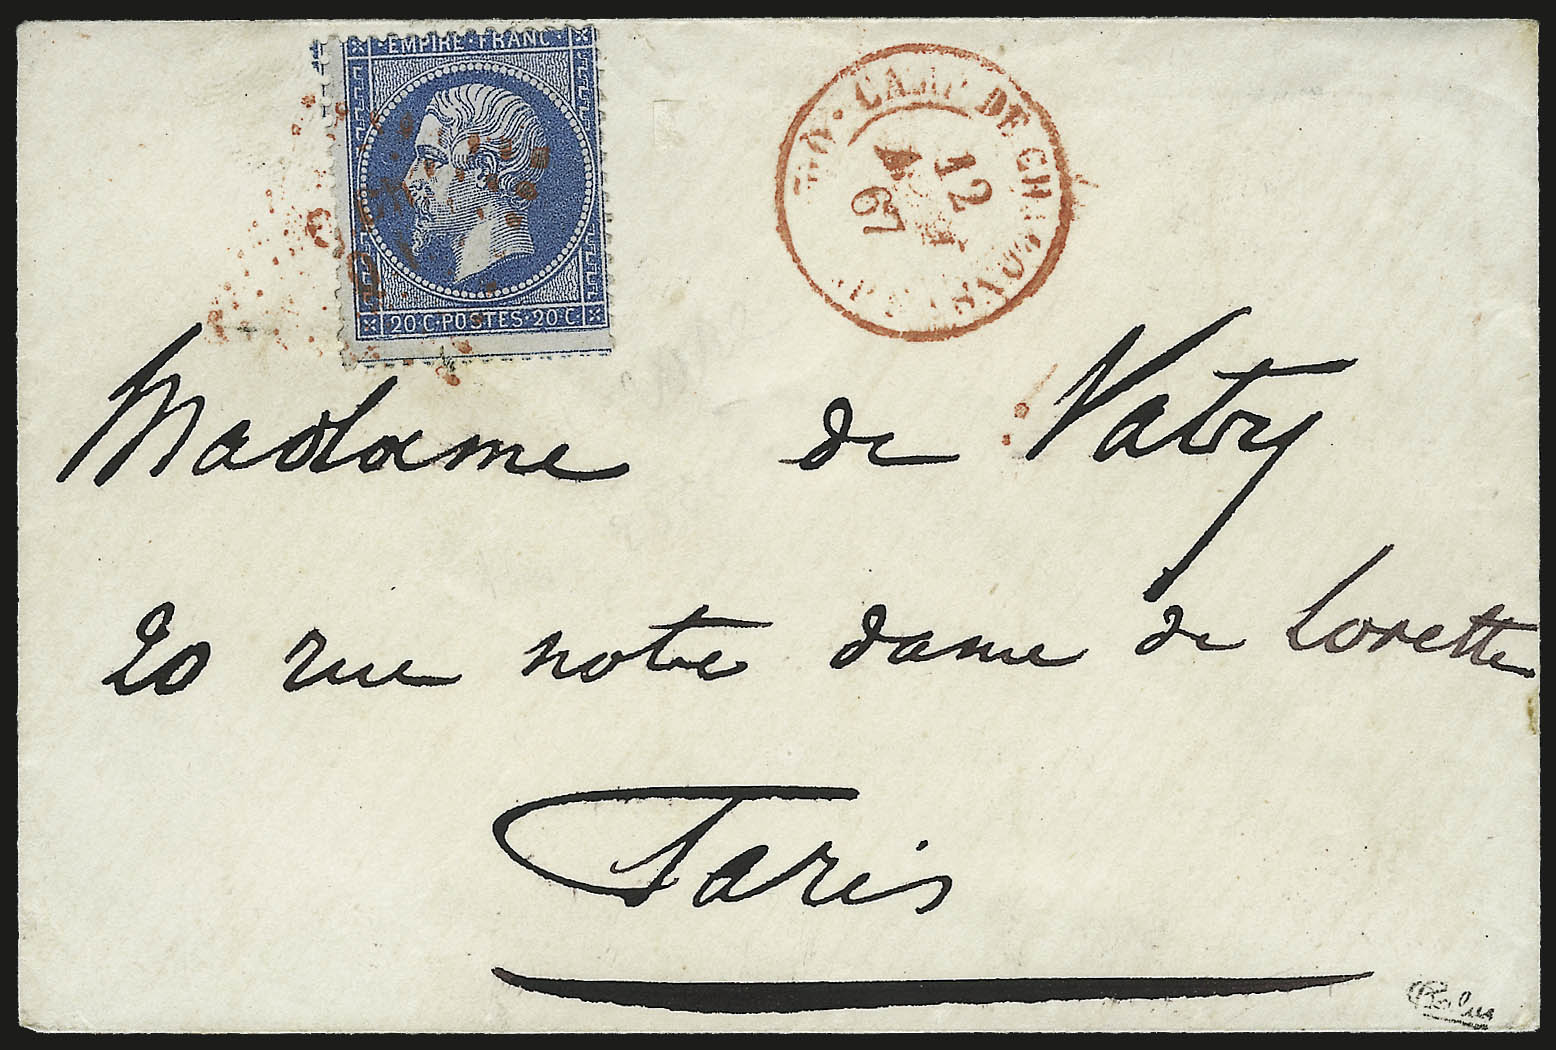 EMPIRE · FRANC
20 C · POSTES · 20 C
CAMP DE CH
12
67
Madame de Vatry
20 rue notre dame de Lorette
Paris